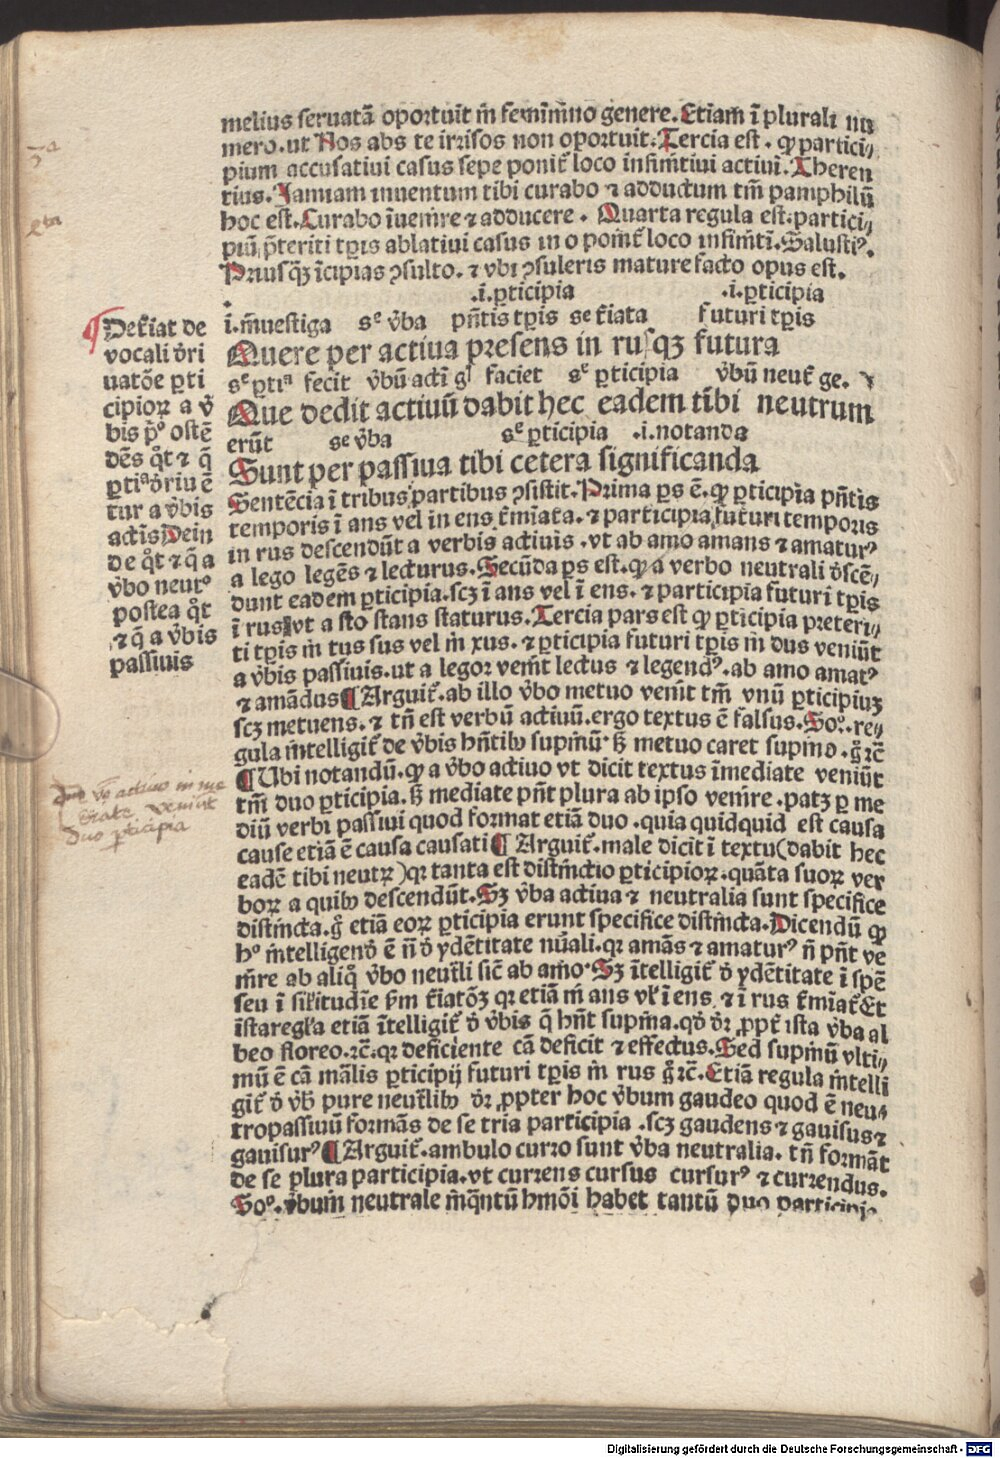 melius seruatā oportuit m̄ feminīno genere. Etiam ī plurali nu
mero. ut Nos abs te irrisos non oportuit. Tercia est . ꝙ partici⸗
pium accusatiui casus sepe ponit᷑ loco infinitiui actiui. Theren
tius. Jannam inuentum tibi curabo ⁊ adductum tm̄ pamphilū
hoc est. Curabo īuenire ⁊ adducere . Quarta regula est. partici⸗
piū p̄teriti tꝑis ablatiui casus in o ponit᷑ loco infiniti. Salustiꝰ.
Priusqꝫ īcipias ꝯsulto. ⁊ vbi ꝯsuleris mature facto opus est.
.i. ꝑticipia .i. ꝑticipia
i. inuestiga sᵉ v̄ba pn̄tis tꝑis se t᷑iata futuri tꝑis
Quere per actiua presens in rusqꝫ futura
sᵉ ꝑtiᵃ fecit v̄bū acti gͥ faciet sᵉ ꝑticipia v̄bū neut᷑ ge.
Que dedit actiuū dabit hec eadem tibi neutrum
erūt se v̄ba sᵉ ꝑticipia .i. notanda
Sunt per passiua tibi cetera significanda
¶ Det᷑iat de
vocali v̄ri
uatōe ꝑti
cipioꝝ a v̄
bis p̄ᵒ ostē
dēs qͦt ⁊ q̄
ꝑtiᵃ v̄riuē
tur a v̄bis
actīs Dein
de qͦt ⁊ q̄ a
v̄bo neutᵒ
postea qͦt
⁊ q̄ a v̄bis
passiuis
Sentēcia ī tribus partibus ꝯsistit. Prima ꝑs ē. ꝙ ꝑticipia pn̄tis
temporis ī ans vel in ens t᷑miata. ⁊ participia futuri temporis
in rus descendūt a verbis actiuis . vt ab amo amans ⁊ amaturꝰ
a lego legēs ⁊ lecturus. Secūda ꝑs est. ꝙ a verbo neutrali d̄scē⸗
dunt eadem ꝑticipia. scꝫ ī ans vel ī ens. ⁊ participia futuri tꝑis
ī rus vt a sto stans staturus. Tercia pars est ꝙ ꝑticipia preteri⸗
ti tꝑis in tus sus vel in xus. ⁊ ꝑticipia futuri tꝑis in dus veniūt
a v̄bis passiuis. ut a legor venit lectus ⁊ legendꝰ. ab amo amatꝰ
⁊ amādus ¶ Arguit᷑. ab illo v̄bo metuo venit tm̄ vnū ꝑticipiuꝫ
scꝫ metuens. ⁊ tn̄ est verbū actiuū. ergo textus ē falsus. Soᵒ. re⸗
gula intelligit᷑ de v̄bis hn̄tibꝰ supinū. sꝫ metuo caret supino . gͦ ⁊c̄
¶ Ubi notandū. ꝙ a v̄bo actiuo vt dicit textus īmediate veniūt
tm̄ duo ꝑticipia. sꝫ mediate pn̄t plura ab ipso venire . patꝫ ꝑ me
diū verbi passiui quod format etiā duo . quia quidquid est causa
cause etiā ē causa causati ¶ Arguit᷑. male dicit ī textu (dabit hec
eadē tibi neutꝝ) qꝛ tanta est distinctio ꝑticipioꝝ. quāta suoꝝ ver
boꝝ a quibꝰ descendūt. Sꝫ v̄ba actiua ⁊ neutralia sunt specifice
distincta. gͦ etiā eoꝝ ꝑticipia erunt specifice distincta. Dicendū ꝙ
hᵒ intelligend̄ ē n̄ d̄ ydētitate nūali. qꝛ amās ⁊ amaturꝰ n̄ pn̄t ve
nire ab aliq̄ v̄bo neut᷑li sic̄ ab amo. Sꝫ ītelligit᷑ d̄ ydētitate ī spē
seu ī sil̄itudīe ẜm t᷑iatōꝫ qꝛ etiā in ans vl̄ ī ens, ⁊ ī rus t᷑miat᷑ Et
īsta regl̄a etiā ītelligit᷑ d̄ v̄bis q̄ hn̄t supīna. qd̄ d̄r ꝓpt᷑ ista v̄ba al
beo floreo. ⁊c̄. qꝛ deficiente cā deficit ⁊ effectus. Sed supinū vlti⸗
mū ē cā mālis ꝑticipij futuri tꝑis in rus gͦ ⁊c̄. Etiā regula intelli
git᷑ d̄ v̄bꝫ pure neut᷑libꝰ d̄r ꝓpter hoc v̄bum gaudeo quod ē neu⸗
tropassiuū formās de se tria participia . scꝫ gaudens ⁊ gauisus ⁊
gauisurꝰ ¶ Arguit᷑. ambulo curro sunt v̄ba neutralia. tn̄ formāt
de se plura participia. vt currens cursus cursurꝰ ⁊ currendus.
Soᵒ. v̄bum neutrale inq̄ntū hmōi habet tantū duo participia
vᵒ actiuo in me
diate veniūt
duo ꝑticipia
Digitalisierung gefördert durch die Deutsche Forschungsgemeinschaft - DFG